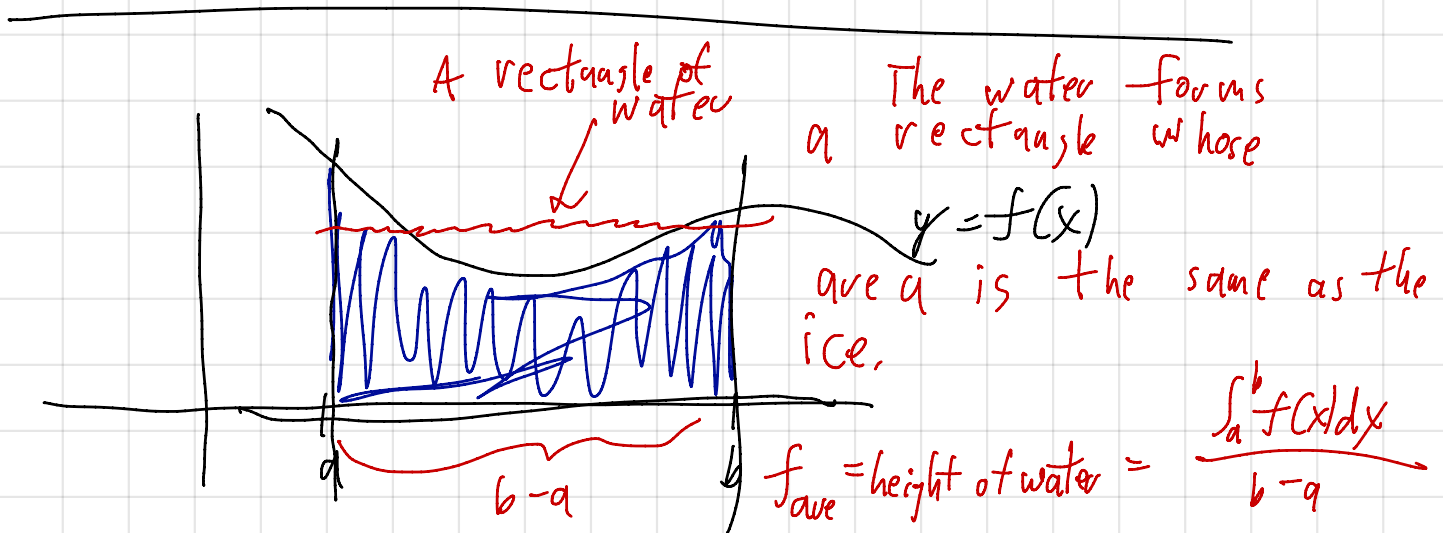 A rectangle of
water
The water forms
a rectangle whose
y = f(x)
area is the same as the
ice.
a
b - a
b
f_ave = height of water = ∫_a^b f(x)dx / b - a